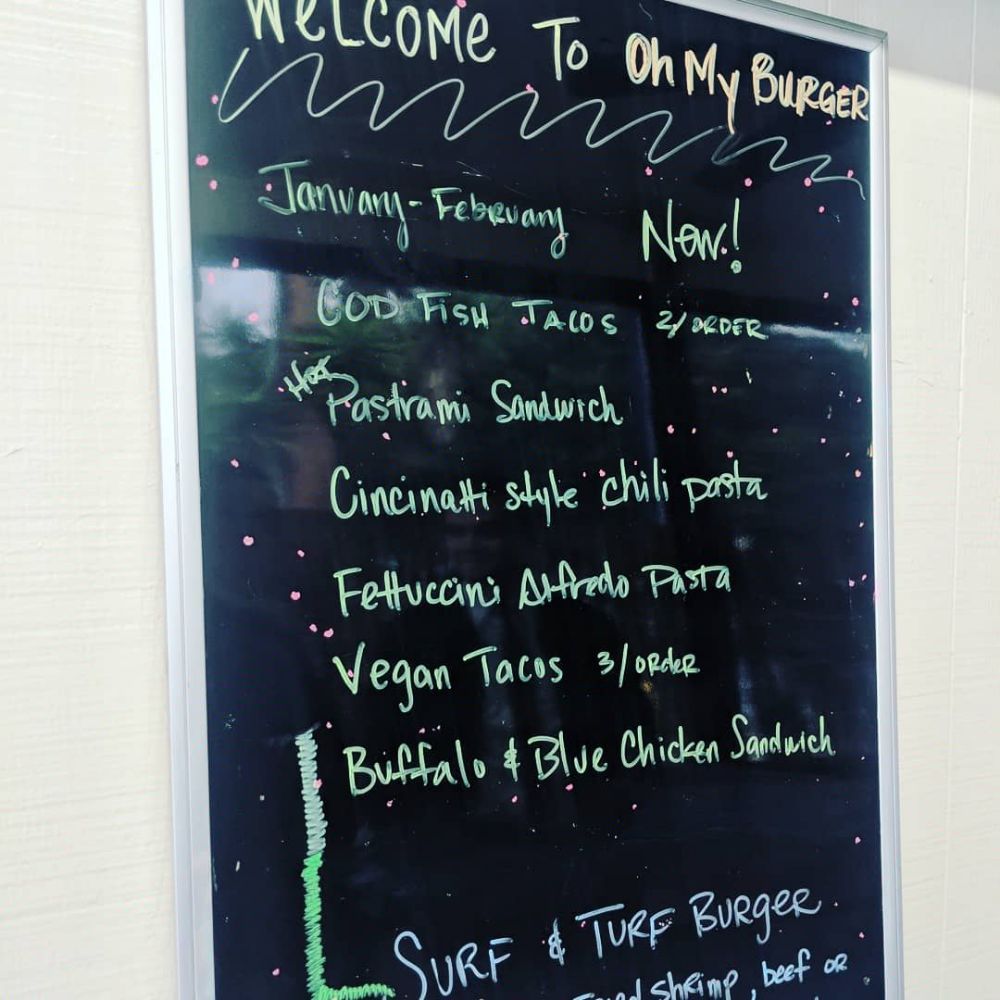 WELCOME TO Oh My BURGER
January - February New!
COD FISH TACOS 2/ORDER
Hot
Pastrami Sandwich
Cincinatti style chili pasta
Fettuccini Alfredo Pasta
Vegan Tacos 3/order
Buffalo & Blue Chicken Sandwich
SURF & TURF BURGER
shrimp, beef or